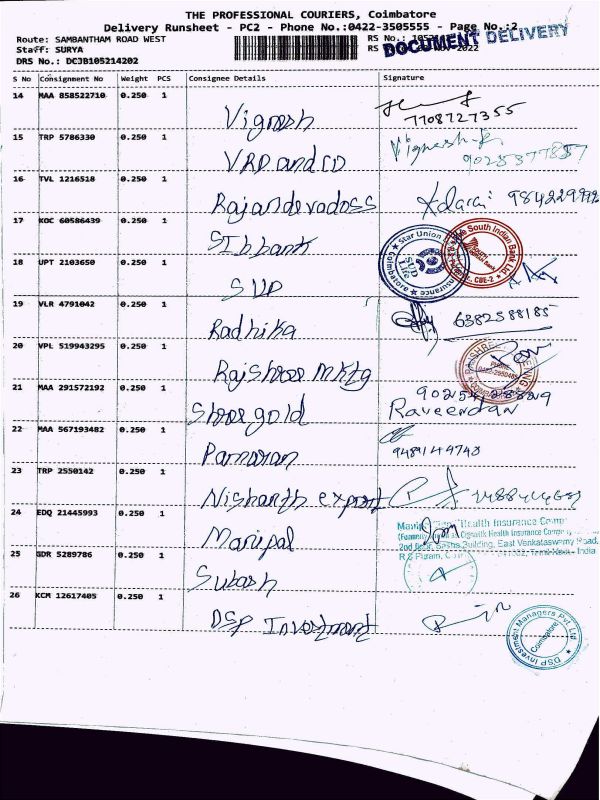 THE PROFESSIONAL COURIERS, Coimbatore
Delivery Runsheet - PC2 - Phone No.:0422-3505555 - Page No.:2
Route: SAMBANTHAM ROAD WEST
RS No.:
DOCUMENT DELIVERY
Staff: SURYA
RS
2022
DRS No.: DCJB105214202
S No Consignment No Weight PCS Consignee Details Signature
14 MAA 858522710 0.250 1 Vignesh 7708727355
15 TRP 5786330 0.250 1 VRP and CO Vignesh
16 TVL 1216518 0.250 1 Rajandevadoss
17 KOC 60586439 0.250 1 SIb bank
Star Union
Insurance
Coimbatore
SUD Life
The South Indian Bank Ltd.
CBE-2
18 UPT 2103650 0.250 1 SUD
19 VLR 4791042 0.250 1 Radhika 6382588185
20 VPL 519943295 0.250 1 Rajshree mktg
PHONE
21 MAA 291572192 1 0.250 Shree gold
Raveendan
22 MAA 567193482 0.250 1 9489149743
23 TRP 2550142 0.250 1 Nishanth export
24 EDQ 21445993 0.250 1 Manipal
Health Insurance
Cignattk Health Insurance Company
2nd Floor, Building, East Venkataswamy Road,
R S Puram, Tamil Nadu - India
25 GDR 5289786 0.250 1 Subash
26 KCM 12617405 0.250 1 DSP Investment
DSP Investment Managers Pvt. Ltd
Coimbatore